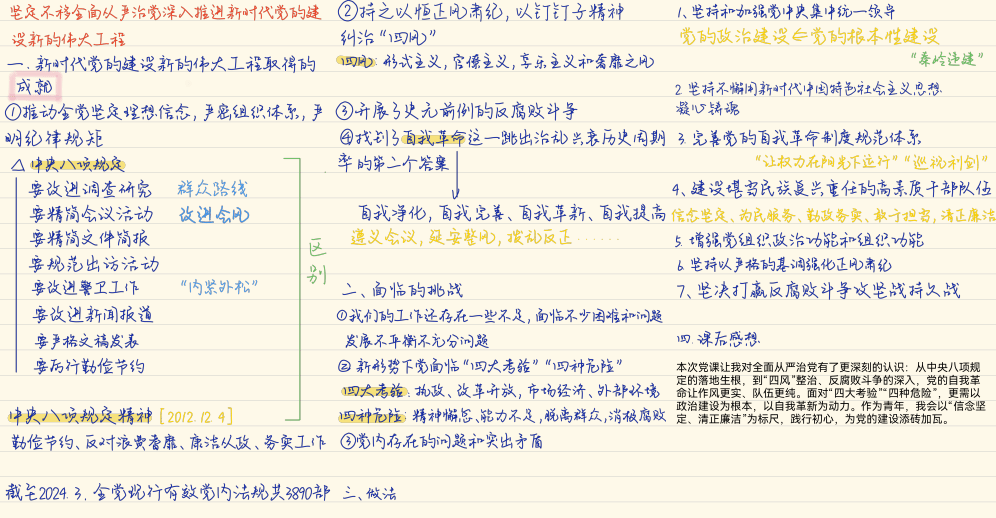 坚定不移全面从严治党深入推进新时代党的建
设新的伟大工程
一.新时代党的建设新的伟大工程取得的
成就
①推动全党坚定理想信念，严密组织体系，严
明纪律规矩
△ 中央八项规定
要改进调查研究 群众路线
要精简会议活动 改进会风
要精简文件简报
要规范出访活动
要改进警卫工作 “内紧外松”
要改进新闻报道
要严格文稿发表
要厉行勤俭节约
区别
中央八项规定精神 [2012.12.4]
勤俭节约、反对浪费奢靡、廉洁从政、务实工作
截至2024.3，全党现行有效党内法规共3890部
②持之以恒正风肃纪，以钉钉子精神
纠治“四风”
四风：形式主义，官僚主义，享乐主义和奢靡之风
③开展了史无前例的反腐败斗争
④找到了自我革命这一跳出治乱兴衰历史周期
率的第二个答案
自我净化，自我完善、自我革新、自我提高
遵义会议，延安整风，拨乱反正……
二、面临的挑战
①我们的工作还存在一些不足，面临不少困难和问题
发展不平衡不充分问题
②新形势下党面临“四大考验”“四种危险”
四大考验：执政、改革开放，市场经济、外部环境
四种危险：精神懈怠、能力不足，脱离群众，消极腐败
③党内存在的问题和突出矛盾
三、做法
1、坚持和加强党中央集中统一领导
党的政治建设⇐党的根本性建设
“秦岭违建”
2.坚持不懈用新时代中国特色社会主义思想
凝心铸魂
3.完善党的自我革命制度规范体系
“让权力在阳光下运行”“巡视利剑”
4、建设堪当民族复兴重任的高素质干部队伍
信念坚定、为民服务、勤政务实、敢于担当，清正廉洁
5.增强党组织政治功能和组织功能
6.坚持以严格的基调强化正风肃纪
7、坚决打赢反腐败斗争攻坚战持久战
四.课后感想
本次党课让我对全面从严治党有了更深刻的认识：从中央八项规
定的落地生根，到“四风”整治、反腐败斗争的深入，党的自我革
命让作风更实、队伍更纯。面对“四大考验”“四种危险”，更需以
政治建设为根本，以自我革新为动力。作为青年，我会以“信念坚
定、清正廉洁”为标尺，践行初心，为党的建设添砖加瓦。